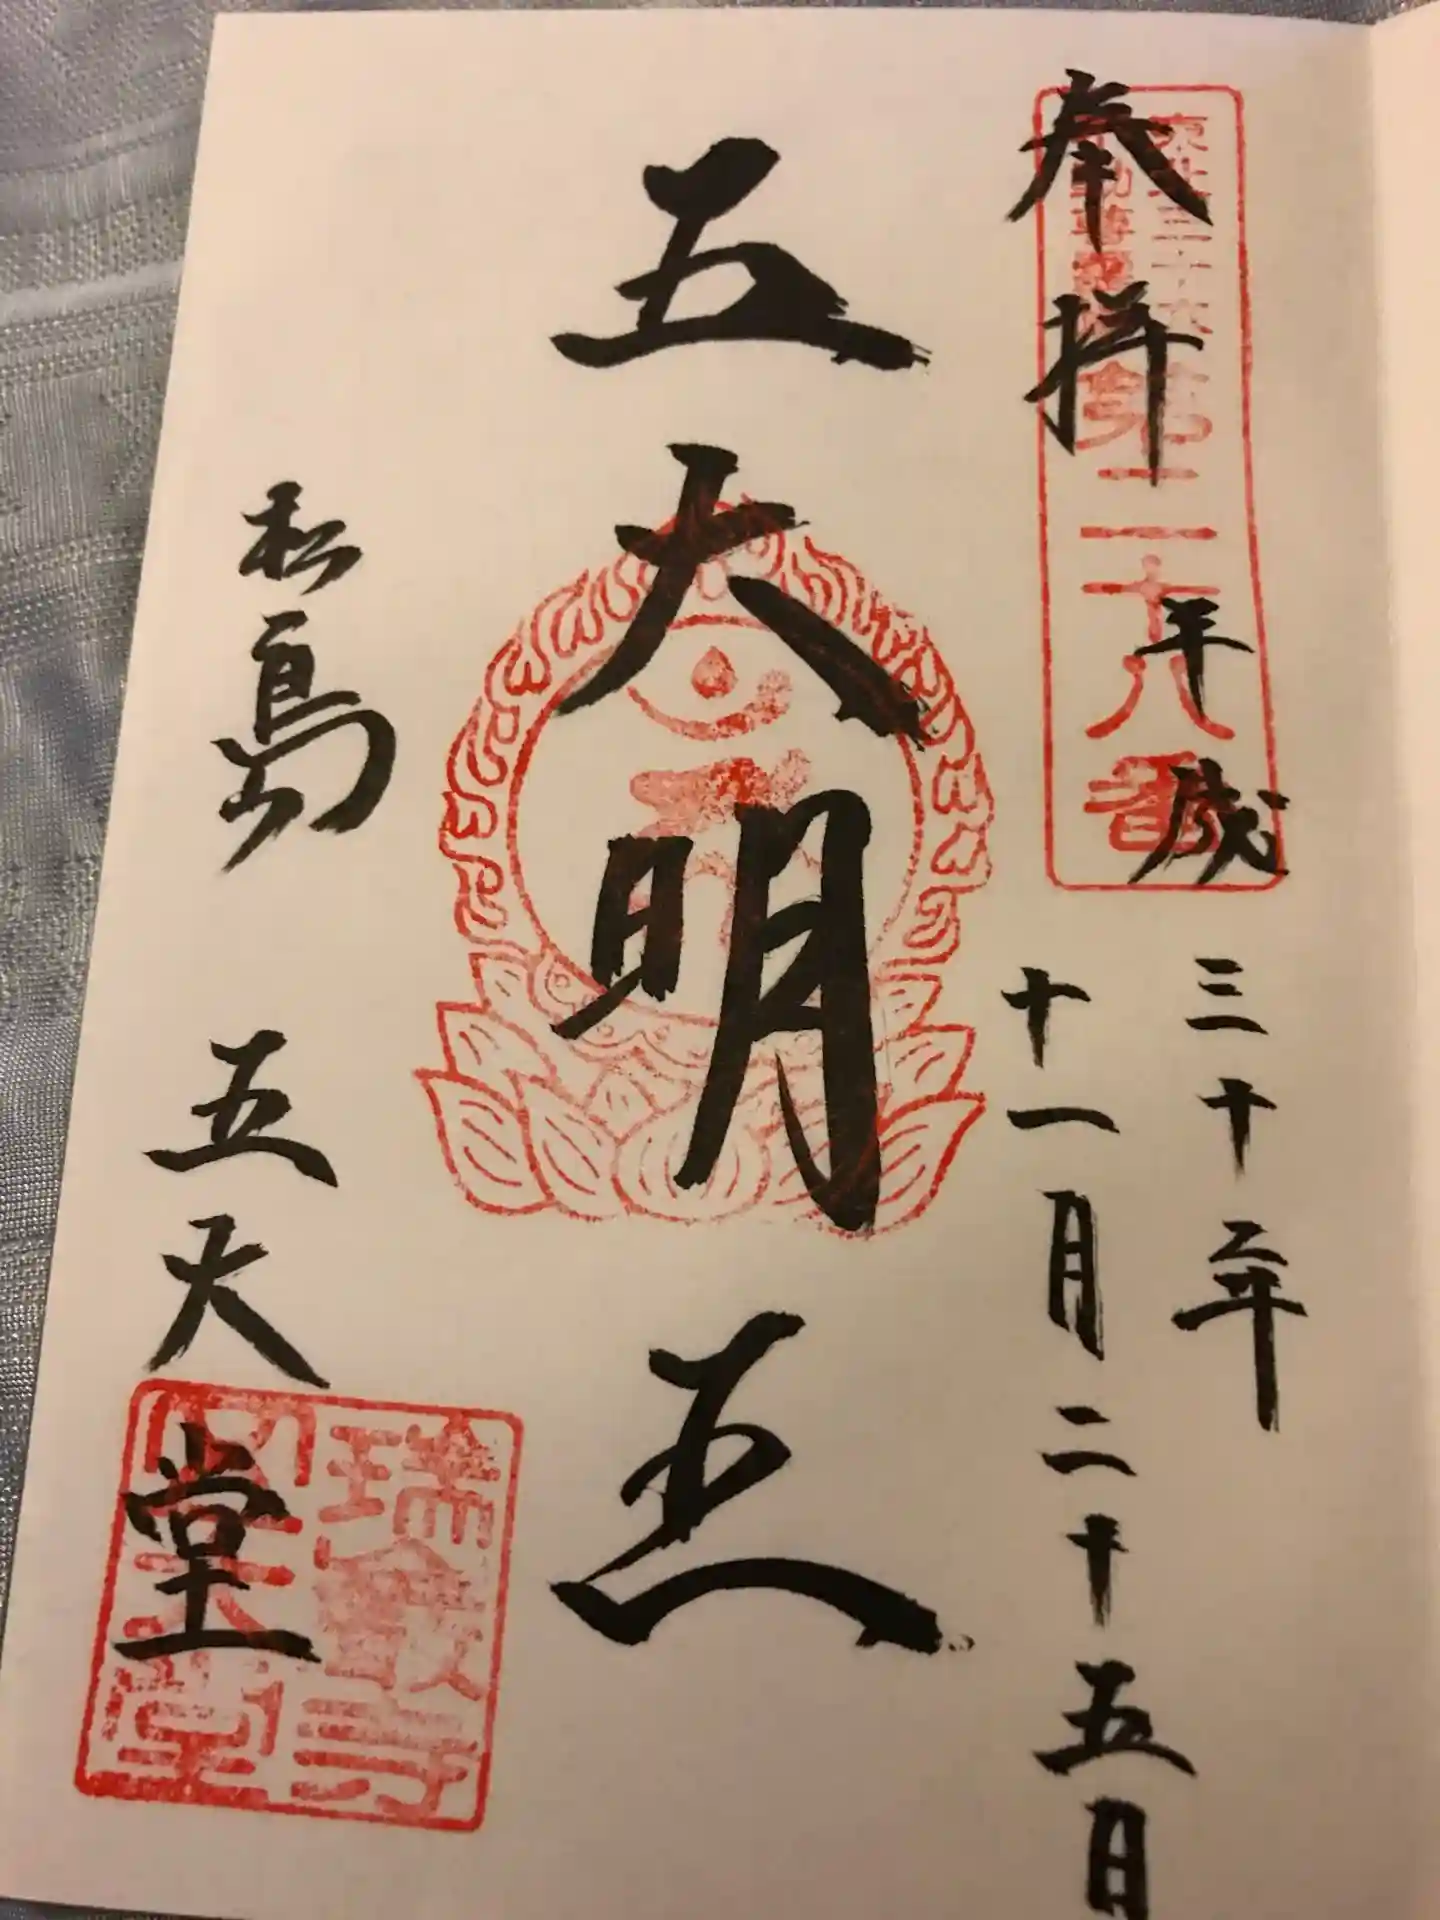 奉拝
東北三十六
不動尊霊場
第二十八番
平成三十年
十一月二十五日
五大明王
松島 五大堂
瑞巌寺
五大堂